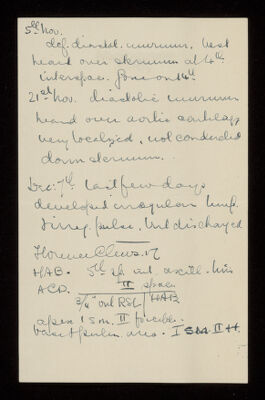 5th Nov.
def. diastol. murmur. best
heard over sternum at 4th
interspac. Gone on 14th
21st Nov. diastolic murmur
heard over aortic cartilage
very localized, not conducted
down sternum.
Dec: 7th last few days
developed irregular
irreg. pulse, but discharged
Florence Clews. 17
HAB. 5th sp. ant. axill. line
ACD. II space
3/4" out RSL | HAB
apex 1 SM. II
base + pulm. area. I SM II H.